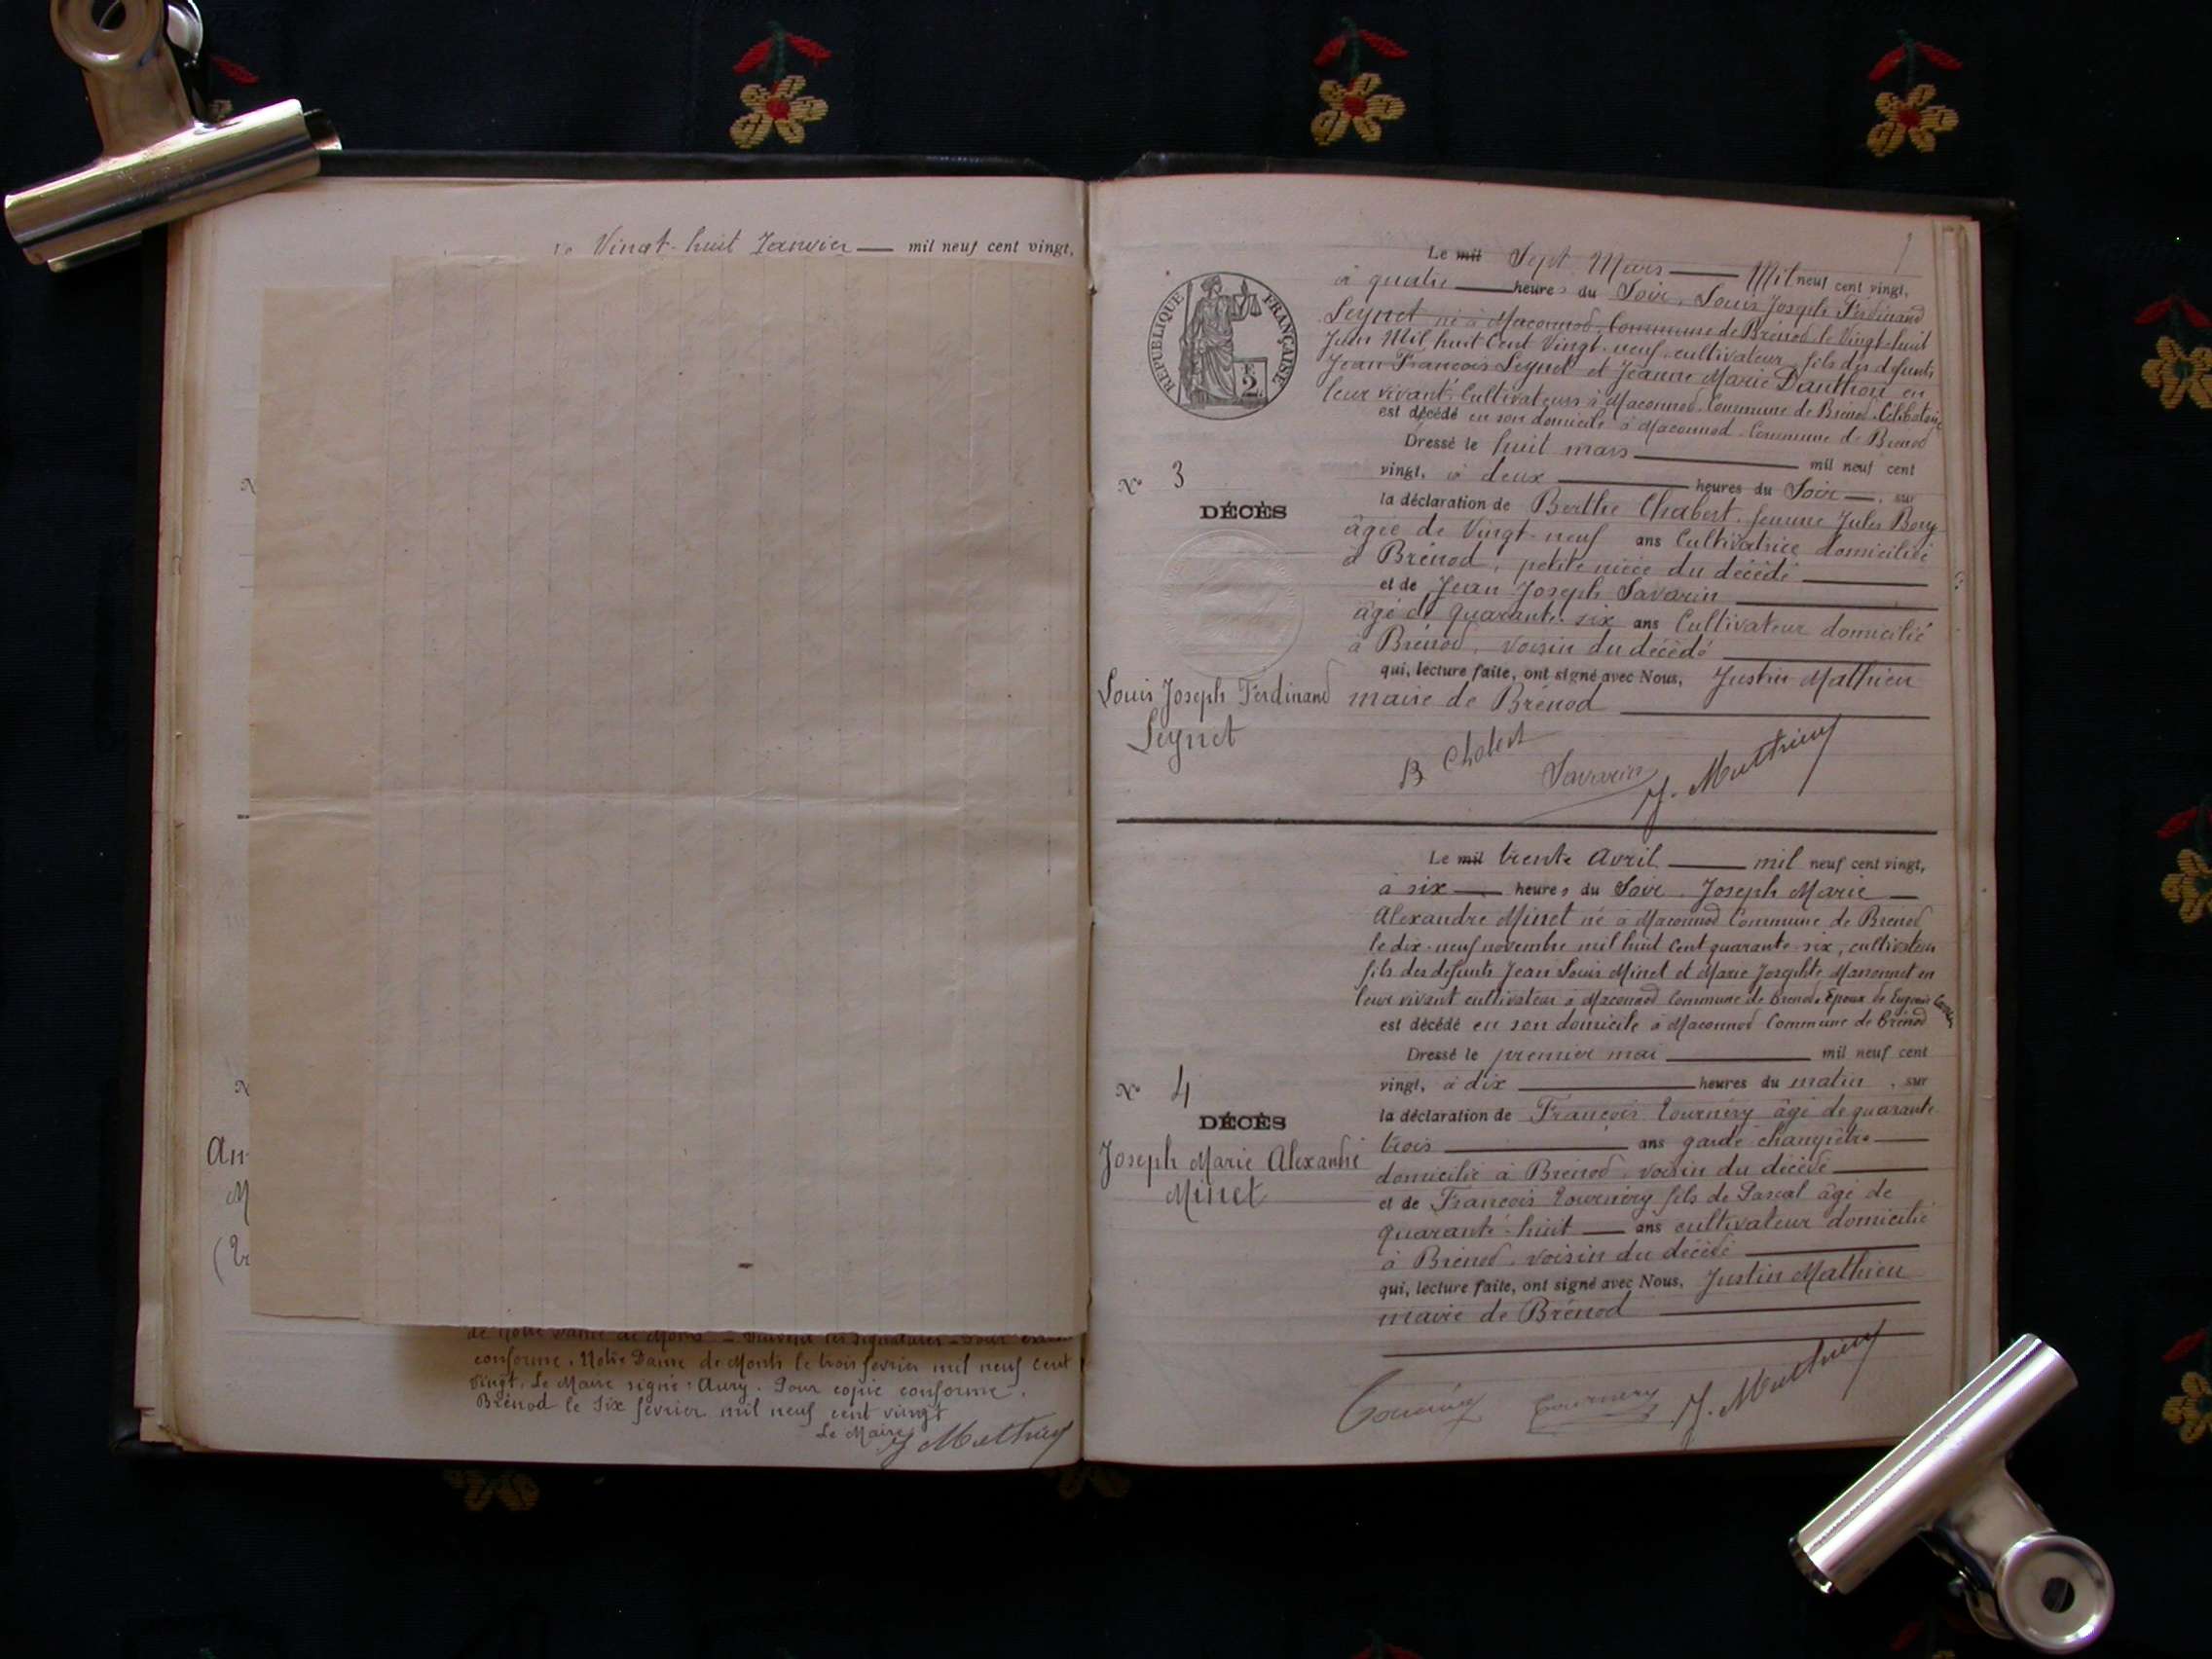 Vingt-huit Janvier — mil neuf cent vingt,
An
M
de Notre Dame de Monts
conforme. Notre Dame de Monts le trois fevrier mil neuf cent
vingt. Le Maire signé: Aury. Pour copie conforme.
Brénod le Six fevrier mil neuf cent vingt
Le Maire
J Mathieu
RÉPUBLIQUE FRANÇAISE
2
N° 3
DÉCÈS
Louis Joseph Ferdinand
Seynet
Le mil Sept Mars — Mil neuf cent vingt,
à quatre — heures du Soir, Louis Joseph Ferdinand
Seynet né à Maconnod, Commune de Brénod le Vingt-huit
Juin Mil huit Cent Vingt-neuf, cultivateur, fils des defunts
Jean François Seynet et Jeanne Marie Danthon en
leur vivant Cultivateurs à Maconnod, Commune de Brénod, Célibataire
est décédé en son domicile à Maconnod, Commune de Brénod
Dressé le huit mars — mil neuf cent
vingt, à deux — heures du Soir —, sur
la déclaration de Berthe Chabert, femme Jules Bory
âgée de Vingt-neuf ans Cultivatrice domiciliée
à Brénod, petite nièce du décédé —
et de Jean Joseph Savarin —
âgé de quarante-six ans Cultivateur domicilié
à Brénod, voisin du décédé —
qui, lecture faite, ont signé avec Nous, Justin Mathieu
maire de Brénod —
B Chabert
Savarin
J. Mathieu
N° 4
DÉCÈS
Joseph Marie Alexandre
Minet
Le mil trente Avril — mil neuf cent vingt,
à six — heures du Soir, Joseph Marie —
Alexandre Minet né à Maconnod Commune de Brénod
le dix-neuf novembre mil huit Cent quarante-six, cultivateur
fils des defunts Jean Louis Minet et Marie Josephte en
leur vivant cultivateur à Maconnod Commune de Brénod, Epoux de Eugenie
est décédé en son domicile à Maconnod Commune de Brénod
Dressé le premier mai — mil neuf cent
vingt, à dix — heures du matin, sur
la déclaration de François Tournéry âgé de quarante
trois — ans garde champêtre —
domicilié à Brénod, voisin du décédé —
et de François Tournéry fils de Pascal âgé de
quarante-huit — ans cultivateur domicilié
à Brénod, voisin du décédé —
qui, lecture faite, ont signé avec Nous, Justin Mathieu
maire de Brénod —
Tournéry
Tournery
J. Mathieu